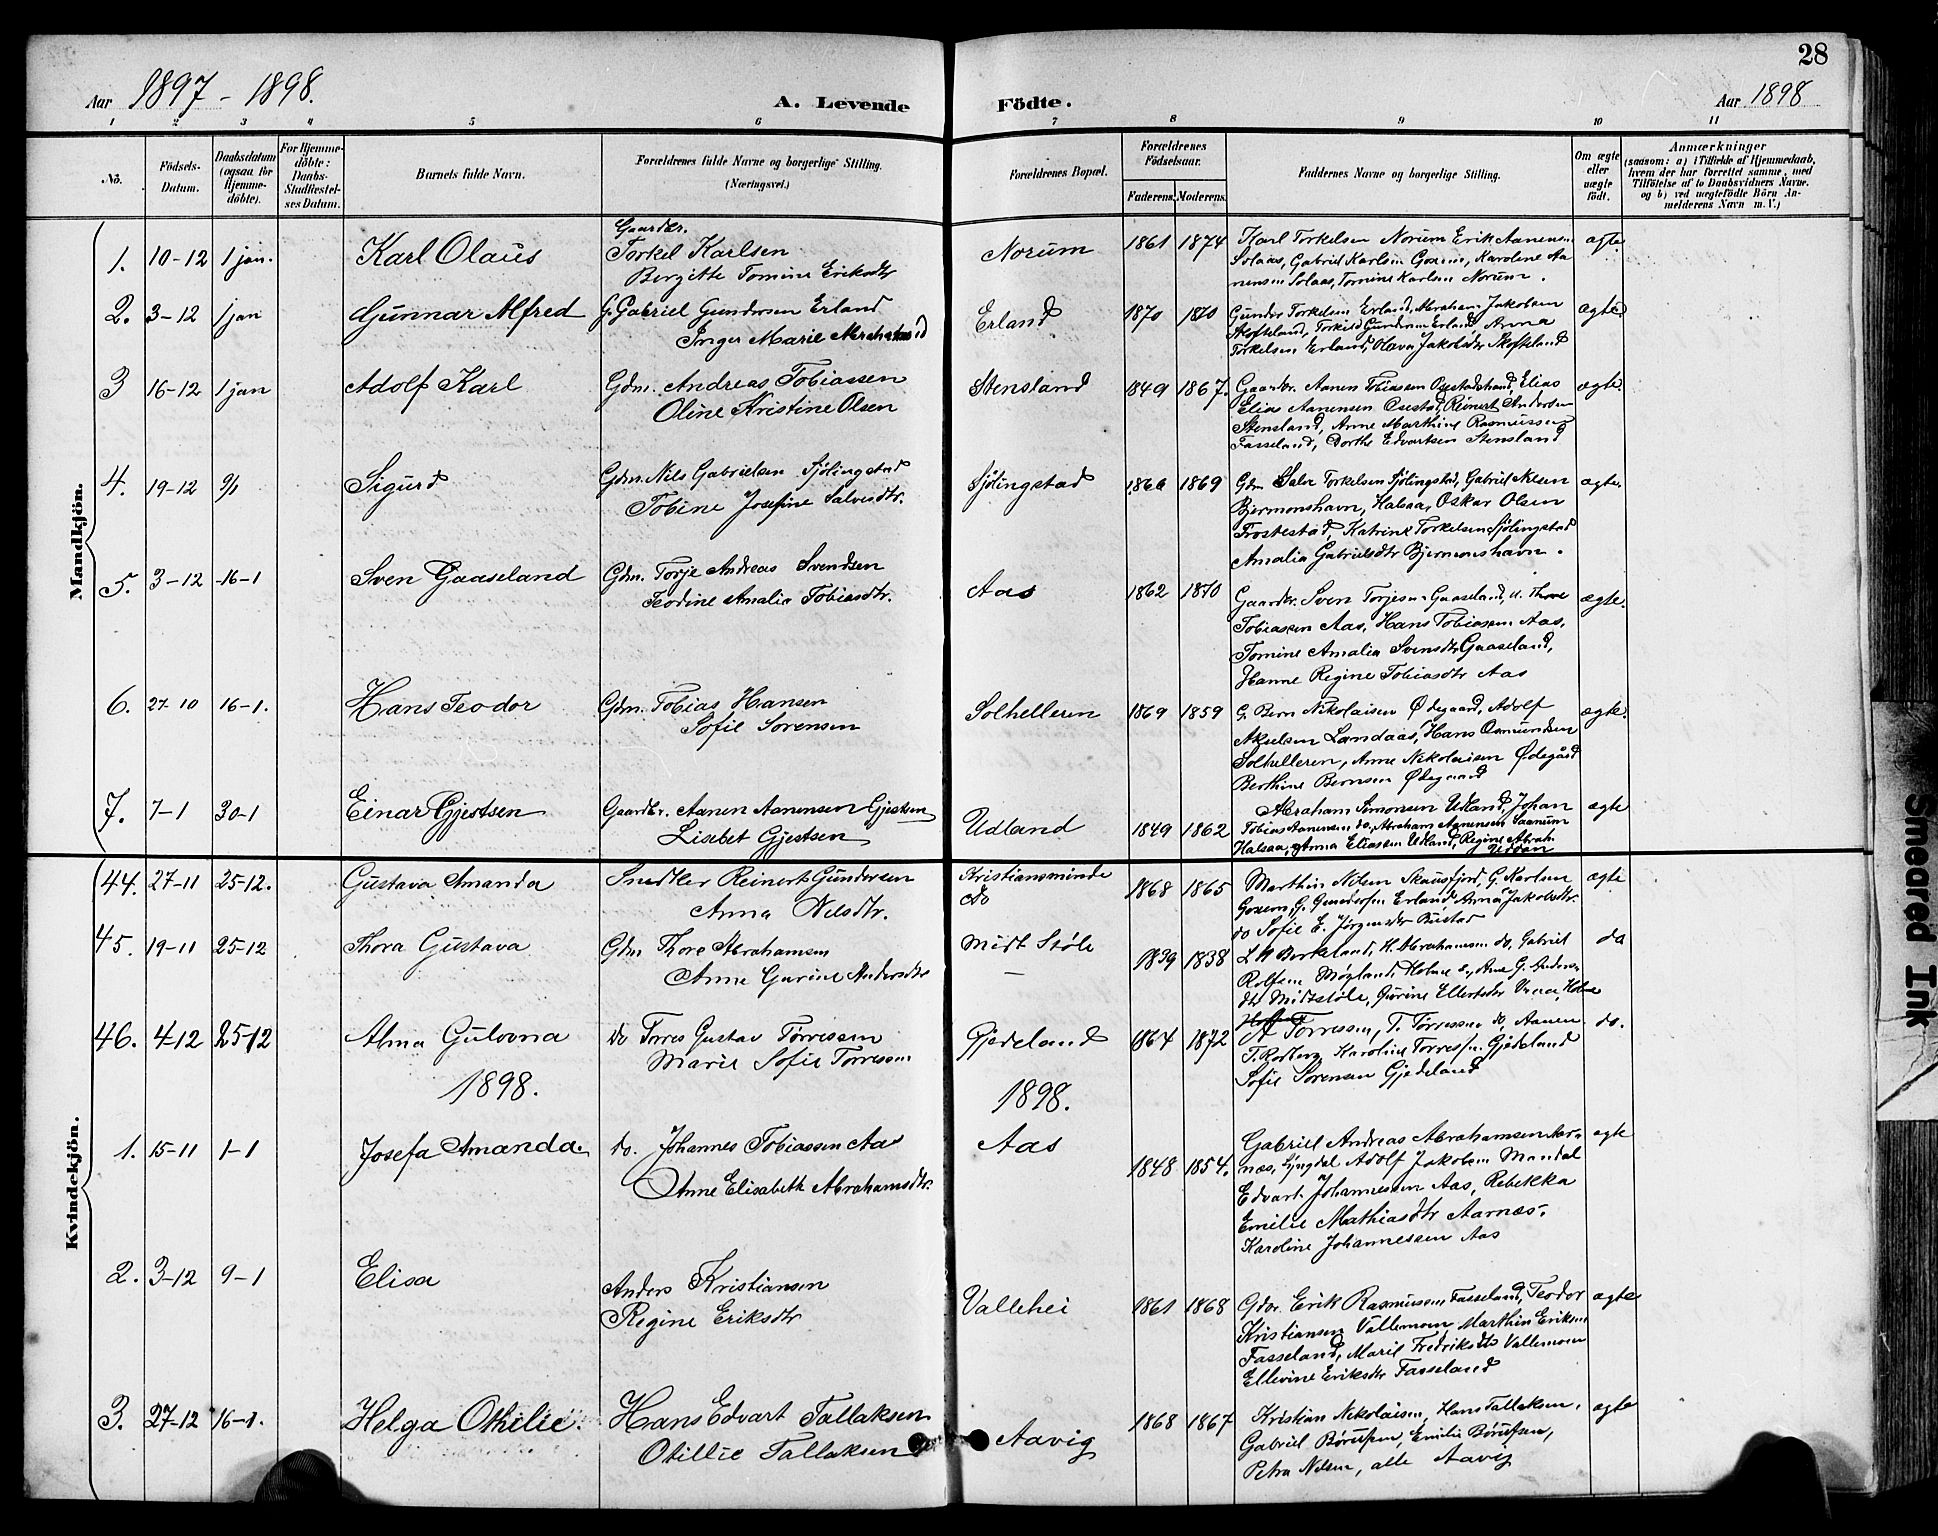 28
Aar 1897 - 1898.
A. Levende Födte.
Aar 1898
1 2 3 4 5 6 7 8 9 10 11
No.
Födsels-Datum.
Daabsdatum (ogsaa for Hjemme-döbte).
For Hjemme-döbte: Daabs-Stadfæstel-ses Datum.
Barnets fulde Navn.
Forældrenes fulde Navne og borgerlige Stilling. (Næringsvei.)
Forældrenes Bopæl.
Forældrenes Födselsaar.
Faderens. Moderens.
Faddernes Navne og borgerlige Stilling.
Om ægte eller uægte födt.
Anmærkninger
(saasom: a) i Tilfælde af Hjemmedaab, hvem der har forrettet samme, med Tilföielse af to Daabsvidners Navne. og b) ved uægtefödte Börn An-melderens Navn m. V.)
Mandkjön.
1. 10-12 1 jan. Karl Olaus
Gaardbr.
Torkel Karlsen
Birgitte Tomine Eriksdtr
Norum 1861 1874
Karl Torkelsen Norum Erik Aanens-
Solaas, Gabriel Karlsen Goxem, Karoline Aa
nensen Solaas, Tomine Karlsen Norum.
ægte
2. 3-12 1 jan Gunnar Alfred
G. Gabriel Gundersen Erland
Inger Marie
Erland 1870 1870
Gunder Torkelsen Erland, Abraham Jakobsen
Skofteland, Torkild Gundersen Erland, Anna
Torkelsen Erland, Olava Jakobsdtr Skofteland
ægte
3 16-12 1 jan Adolf Karl
Gdm. Andreas Tobiassen
Oline Kristine Olsen
Stensland 1849 1867.
Gaardbr. Aanen Tobiassen Elias
Elias Aanensen Reinert Andersen
Stensland, Anne Marthine Rasmussen
Fasseland, Dorthe Edvartsen Stensland
ægte.
4. 19-12 9/1 Sigurd
Gdm. Nils Gabrielsen Sjölingstad
Tobine Josefine Salvesdtr.
Sjölingstad 1869
Gdm Salve Torkelsen Sjölingstad, Gabriel Nilsen
Bjermonshavn, Halsaa, Oskar Olsen
Frostestad, Katrine Torkelsen Sjölingstad
Amalia Gabrielsdtr Bjermonshavn.
ægte.
5. 3-12 16-1 Sven Gaaseland
Gdm. Torje Andreas Svendsen
Teodine Amalie Tobiasdtr.
Aas 1862 1870
Gaardbr. Sven Torjesen Gaaseland,
Tobiassen Aas, Hans Tobiassen Aas,
Tomine Amalia Svensdtr Gaaseland,
Hanne Regine Tobiasdtr Aas
ægte.
6. 27-10 16-1. Hans Teodor
Gdm. Tobias Hansen
Sofie Sorensen
Solhelleren 1869 1859
G. Bern Nikolaisen Ødegaard, Adolf
Akselsen Landaas, Hans Osmundsen
Solhelleren, Anne Nikolaisen Ødegård
Berthine Bernsen Ødegaard
ægte.
7. 7-1 30-1 Einar Gjestsen
Gaardbr. Aanen Aanensen Gjestsen
Lisebet Gjestsen
Udland 1849 1862
Abraham Simonsen Udland, Johan
Tobias Aanensen do, Abraham Aanensen Saanum
Halsaa, Anna Eliassen Udland, Regine Abrah.
Udland
ægte
Kvindekjön.
44. 27-11 25-12. Gustava Amanda
Snedker Reinert Gundersen
Anna Nilsdtr.
Kristiansminde
do
1868 1865
Marthin Nilsen Skausfjord, G. Karlsen
Goxem, G. Gundersen Erland Anna Jakobsdtr.
do Sofie E. Jørgensdtr Bustad
ægte
45. 19-11 25-12 Thora Gustava
Gdm Thore Abrahamsen
Anne Gurine Andersdtr
Midt Støle
1839 1838
Birkeland, H. Abrahamsen do, Gabriel
Rolfsen Møgland, Holme s., Ane G. Anders-
dtr Midtstøle, Gurine Ellertsdtr Holme
do
46. 4-12 25-12 Alma Gulovna
do Torres Gustav Tørressen
Marie Sofie Torressen
Gjedeland 1864 1872
A Torressen, T. Tørressen do, Aanen
T. Karoline Torressen Gjedeland
Sofie Sorensen Gjedeland
do.
1898. 1898.
1. 15-11 1-1 Josefa Amanda
do. Johannes Tobiassen Aas
Anne Elisabeth Abrahamsdtr.
Aas 1848 1854.
Gabriel Andreas Abrahamsen Aar-
næs, Lyngdal Adolf Jakobsen Mandal
Edvart Johannessen Aas, Rebekka
Emilie Mathiasdtr Aarnæs.
Karoline Johannessen Aas
ægte
2. 3-12 9-1 Elisa
Anders Kristiansen
Regine Eriksdtr
Vallehei 1861 1868
Gdbr. Erik Rasmussen Fasseland, Teodor
Kristiansen Vallemoen Marthin Eriksen
Fasseland, Marie Fredriksdtr Vallemoen
Ellevine Eriksdtr Fasseland
ægte
3. 27-12 16-1. Helga Othilie.
Hans Edvart Tallaksen
Otillie Tallaksen
Aavig 1868 1867
Kristian Nikolaisen, Hans Tallaksen,
Gabriel Børufsen, Emilie Børufsen,
Petra Nilsen, alle Aavig
ægte
Smeared Ink